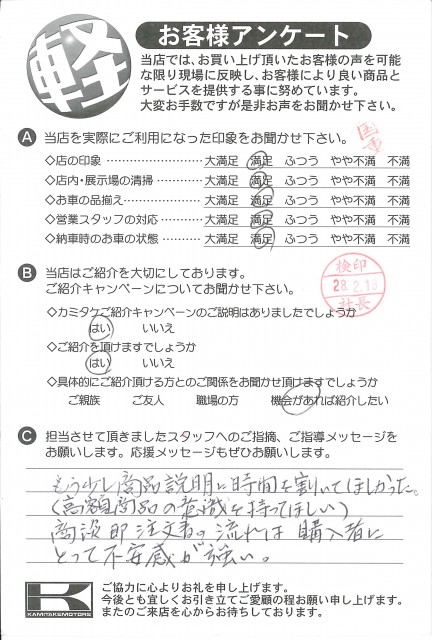 軽
お客様アンケート
当店では、お買い上げ頂いたお客様の声を可能
な限り現場に反映し、お客様により良い商品と
サービスを提供する事に努めています。
大変お手数ですが是非お声をお聞かせ下さい。
A 当店を実際にご利用になった印象をお聞かせ下さい。
◇店の印象 大満足 満足 ふつう やや不満 不満
◇店内・展示場の清掃 大満足 満足 ふつう やや不満 不満
◇お車の品揃え 大満足 満足 ふつう やや不満 不満
◇営業スタッフの対応 大満足 満足 ふつう やや不満 不満
◇納車時のお車の状態 大満足 満足 ふつう やや不満 不満
B 当店はご紹介を大切にしております。
ご紹介キャンペーンについてお聞かせ下さい。
検印
28.2.18
社長
◇カミタケご紹介キャンペーンのご説明はありましたでしょうか
はい いいえ
◇ご紹介を頂けますでしょうか
はい いいえ
◇具体的にご紹介頂ける方とのご関係をお聞かせ頂けますでしょうか
ご親族 ご友人 職場の方 機会があれば紹介したい
C 担当させて頂きましたスタッフへのご指摘、ご指導メッセージを
お願いします。応援メッセージもぜひお願いします。
もう少し商品説明に時間を割いてほしかった。
(高額商品の意識を持ってほしい)
商談即注文書の流れは購入者に
とって不安感が強い。
K
KAMITAKEMOTORS
ご協力に心よりお礼を申し上げます。
今後とも宜しくお引き立てご愛顧の程お願い申し上げます。
またのご来店を心からお待ちしております。